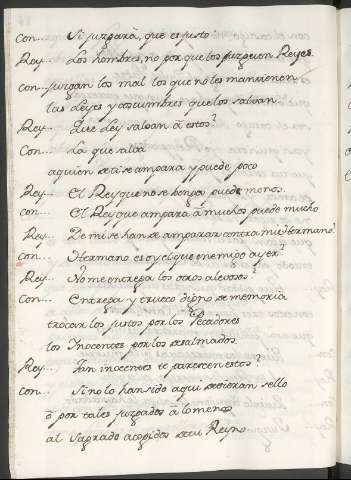 Con... Si juzgarà, que es justo
Rey... Los hombres, no porque los juzguen Reyes.
con... juzgan los mal los que no les mantienen
las Leyes y costumbres que los salvan.
Rey... Que Ley salvan a estos?
Con... La que salva
aquien de ti se ampara y puede poco
Rey... El Rey que no se benga puede menos.
con... El Rey que ampara à muchos puede mucho
Rey... De mi se han de amparar contra mi Hermano?
con... Hermano es oy el que enemigo ayer?
Rey... No me entrega los otros alevosos?
Con... Entrega y trueco digno de memoria
trocar los justos por los Pecadores
los Inocentes por los desalmados.
Rey... Tan inocentes te parescen estos?
con... Si no lo han sido aqui devieran sello
ô por tales juzgados à lo menos
al sagrado acogidos de tu Reyno